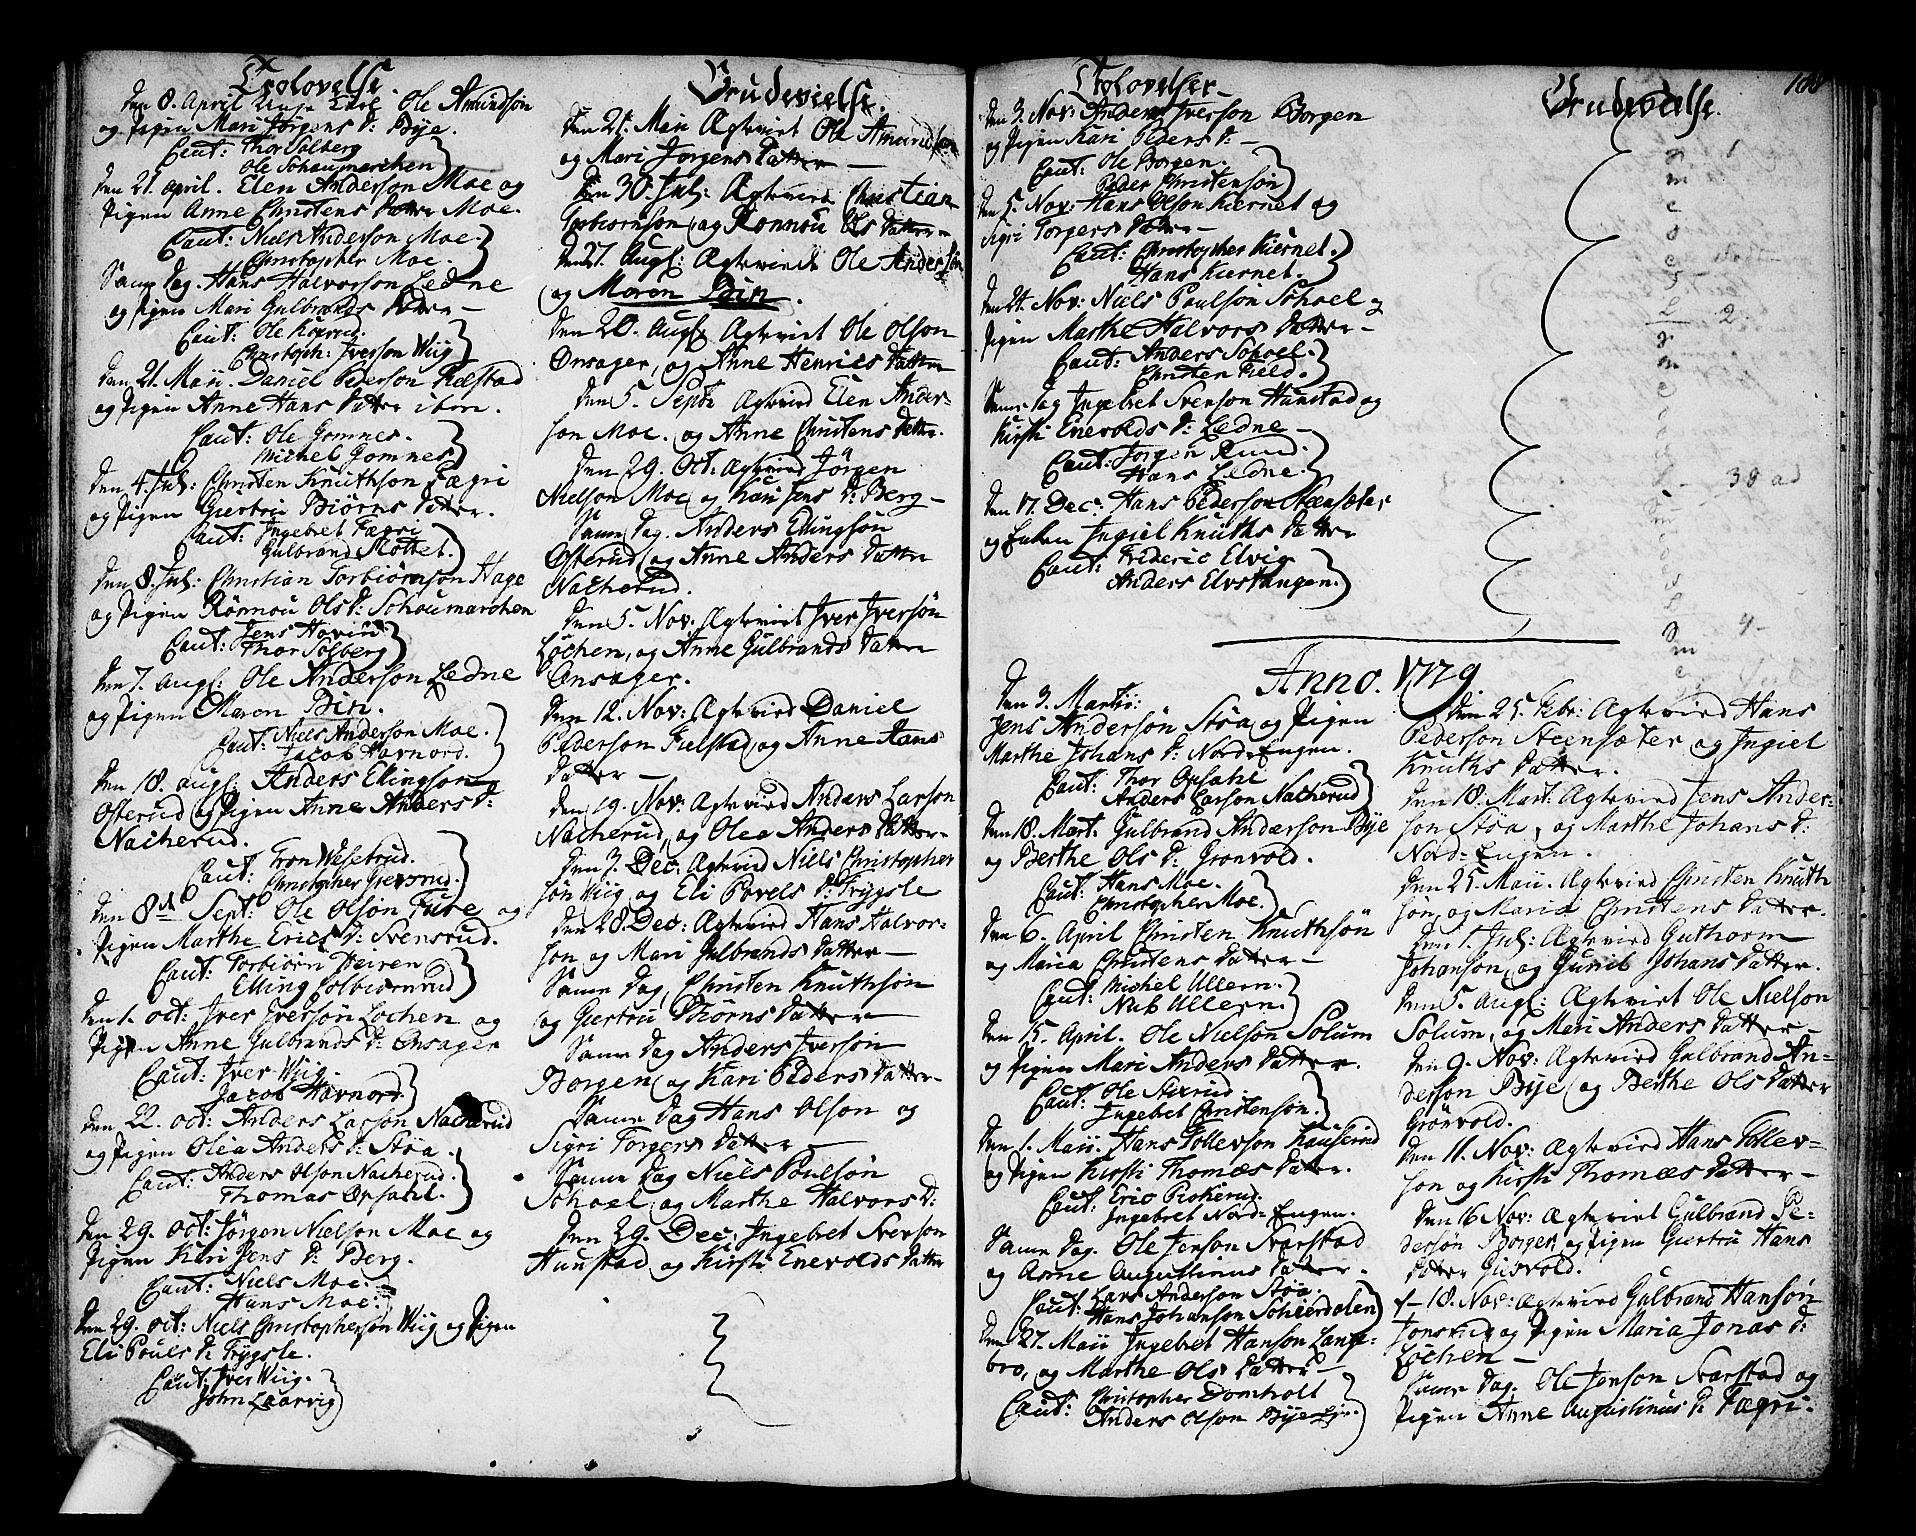 Trolovelse.
Den 8. April Unge Karl Ole Amundsön
og Pigen Mari Jörgens D: Bÿe.
Caut: Thor Solberg
Ole Schaumarchen
Den 21. april. Elen Anderson Moe og
Pigen Anne Christens Datter Moe.
Caut: Niels Anderson Moe
Christopher Moe.
Samme Dag. Hans Halvorson Ledne
og Pigen Mari Gulbrands Datter
Caut: Ole
Christoph: Iverson Wiig
Den 21. Maii. Daniel Pederson Fielstad
og Pigen Anne Hans Datter ibm.
Caut: Ole Gomnes.
Michel Gomnes
Den 4. Jul: Christen Knuthson Fægri
og Pigen Giertru Biörns Datter.
Caut: Ingebret Fægri
Gulbrand Mottet.
Den 8. Jul: Christian Torbiörnson Hage
og Pigen Rönnou Ols D: Schoumarchen
Caut: Jens Hovin
Thor Solberg
Den 7. Augl: Ole Anderson Ledne
og Pigen Maren Bin.
Caut: Niels Anderson Moe.
Jacob Havnord.
Den 18. augl: Anders Elingson
Osterud og Pigen Anne Anders D:
Nacherud.
Caut: Tron Wesetrud.
Christopher Giersrud.
Den 8de Sept: Ole Olson Ture og
Pigen Marthe Erics D: Svensrud.
Caut: Torbiörn Heiren
Elling Tolbiörnrud
Den 1. Oct: Iver Iversön Lochen og
Pigen Anne Gulbrands D: Onsager
Caut: Iver Wiig.
Jacob Havnord
Den 22. Oct: Anders Larson Nacherud
og Pigen Olea Anders D: Stöa.
Caut: Anders Olson Nacherud.
Thomas Opsahl.
Den 29. Oct: Jörgen Nielson Moe og
Pigen Kari Jens D: Berg.
Caut: Niels Moe.
Hans Moe.
Den 29. Oct: Niels Christopherson Wiig og Pigen
Eli Pouls D: Frÿgsle.
Caut: Iver Wiig.
John Laarvig
Brudevielse.
Den 21. Maii Ægteviet Ole Amundsen
og Mari Jorgens Datter
Den 30. Jul: Ægtevied Christian
Torbiörnson og Ronnou Ols Datter
Den 27. Augl: Ægteviede Ole Andersön
og Maren Bin.
Den 20. Augl: Ægteviet Ole Olson
Onsager, og Anne Henrics Datter
Den 5. Septr Ægtevied Elen Ander-
son Moe. og Anne Christens Datter.
Den 29. Oct: Ægtevied Jörgen
Nielson Moe og Kari Jens D: Berg
Samme Dag. Anders Ellingsön
Osterud og Anne Anders Datter
Nacherud.
Den 5. Nov. Ægteviet Iver Iversön
Lochen, og Anne Gulbrands Datter
Onsager.
Den 12. Nov: Ægtevied Daniel
Pederson Fielstad og Anne Hans
Datter
Den 19. Nov: Ægtevied Anders Larson
Nacherud, og Olea Anders Datter
Den 3. Dec: Ægtevied Niels Christopher
sön Wiig og Eli Povels D: Frÿgsle
Den 28. Dec: Ægtevied Hans Halvor-
son og Mari Gulbrands Datter
Samme Dag, Christen Knuthsön
og Giertru Biörns Datter
Samme Dag Anders Iversön
Borgen og Kari Peders Datter
Samme Dag Hans Olson og
Sigri Torgers Datter
Samme Dag Niels Poulsön
Schoel og Marthe Halvors D:
Den 29. Dec: Ingebret Svenson
Hunstad og Kirsti Enevolds Datter
Trolovelser
Den 3. Nov: Anders Iverson Borgen
og Pigen Kari Peders D:
Caut: Ole Borgen.
Peder Christensön
Den 5. Nov: Hans Olson Kiernet og
Sigri Torgers Datter
Caut: Christopher Kiernet.
Hans Kiernet.
Den 21. Nov: Niels Poulsön Schoel og
Pigen Marthe Halvors Datter
Caut: Anders Schoel.
Christen Field.
Samme Dag Ingebret Svenson Hunstad og
Kirsti Enevolds D: Ledne
Caut: Jorgen Rund.
Hans Ledne.
Den 17. Dec: Hans Pederson Steensæter
og Enken Ingiel Knuths Datter
Caut: Frideric Elvig
Anders Elvstangen.
Brudevielse.
1
2.
38 ad
4-
Anno. 1779
Den 3. Martii:
Jens Andersön Stöa og Pigen
Marthe Johans D: Nord-Engen.
Caut: Thor Opsahl
Anders Larson Nacherud
Den 18. Mart. Gulbrand Anderson Bÿe
og Berthe Ols D: Gronvold.
Caut: Hans Moe.
Christopher Moe.
Den 6. April Christen Knuthsön
og Maria Christens Datter
Caut: Michel Ullern.
Nub Ullern.
Den 15. April. Ole Nielson Solum
og Pigen Mari Anders Datter.
Caut: Ole Stixrud
Ingebret Christensön.
Den 1. Maii. Hans Tollevson Kauserud
og Pigen Kirsti Thomæs Datter.
Caut: Eric Piokerud.
Ingebret Nord-Engen.
Samme Dag. Ole Jenson Svarstad
og Anne Augustinus Datter.
Caut: Lars Anderson Stöa.
Hans Johanson Schierdalen
Den 27. Maii Ingebret Hanson Lange-
bro, og Marthe Ols Datter
Caut: Christopher Domholt
Anders Olson Bÿe
Den 25. Febr: Ægtevied Hans
Pederson Steensæter og Ingiel
Knuths Datter.
Den 18. Mart: Ægtevied Jens Ander-
son Stöa, og Marthe Johans D:
Nord-Engen.
Den 25. Maii. Ægtevied Christen Knuth
sön, og Maria Christens Datter.
Den 1. Jul: Ægtevied Guthorm
Johanson, og Gunil Johans Datter.
Den 5. Augl: Ægteviet Ole Nielson
Solum, og Mari Anders Datter
Den 9. Nov: Ægtevied Gulbrand An-
derson Bÿe og Berthe Ols Datter
Grönvold.
Den 11. Nov: Ægtevied Hans Tollev-
son og Kirsti Thomæs Datter
Den 16 Nov: Ægteviet Gulbrand Pe-
dersön Borgen og Pigen Giertru Hans
Datter Gusvold.
18. Nov: Ægtevied Gulbrand Hansön
Jonsrud og Pigen Maria Jonas D:
Lochen
Samme Dag. Ole Jenson Svarstad og
Pigen Anne Augustinus D: Fægri.